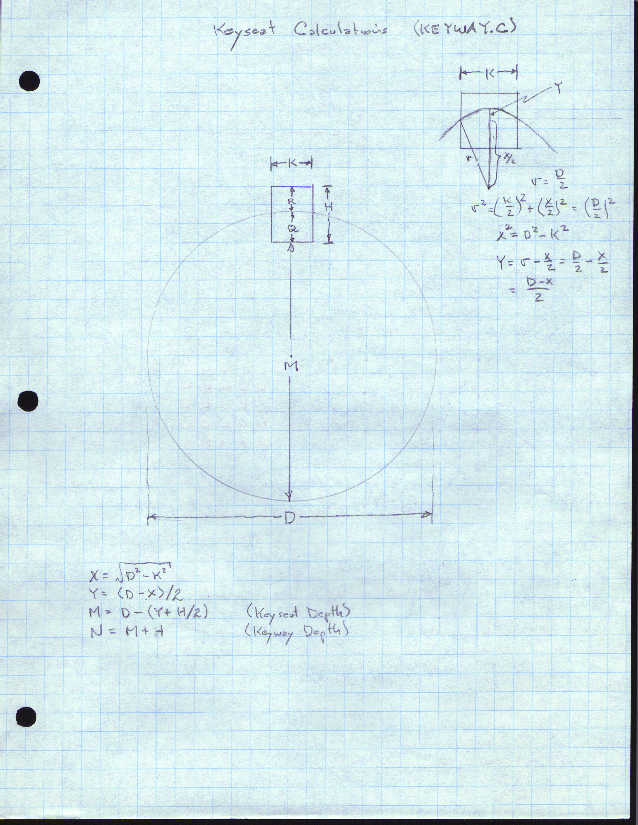 Keyseat Calculations (KEYWAY.C)
K
Y
r
X/2
r = D/2
r² = (K/2)² + (X/2)² = (D/2)²
X² = D² - K²
Y = r - X/2 = D/2 - X/2
= D-X/2
K
R
H
Q
M
D
X = √D² - K²
Y = (D - X)/2
M = D - (Y + H/2) (Keyseat Depth)
N = M + H (Keyway Depth)